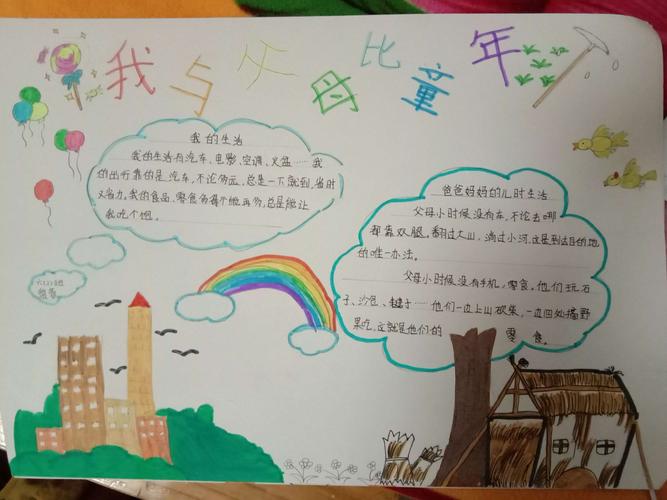 我与父母比童年
我的生活
我的生活有汽车、电影、空调、火盆……我
的出行靠的是汽车，不论多远，总是一下就到，省时
又省力。我的食品、零食多得不能再多，总是能让
我吃个饱。
爸爸妈妈的儿时生活
父母小时候没有车，不论去哪
都靠双腿。翻过大山，淌过小河，这是到达目的地
的唯一办法。
父母小时候没有手机，零食。他们玩石
子、沙包、毽子……他们一边上山砍柴，一边四处摘野
果吃，这就是他们的 零食。